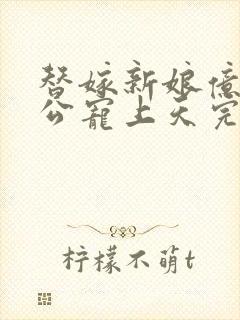 替嫁新娘億
公寵上天完
柠檬不萌t